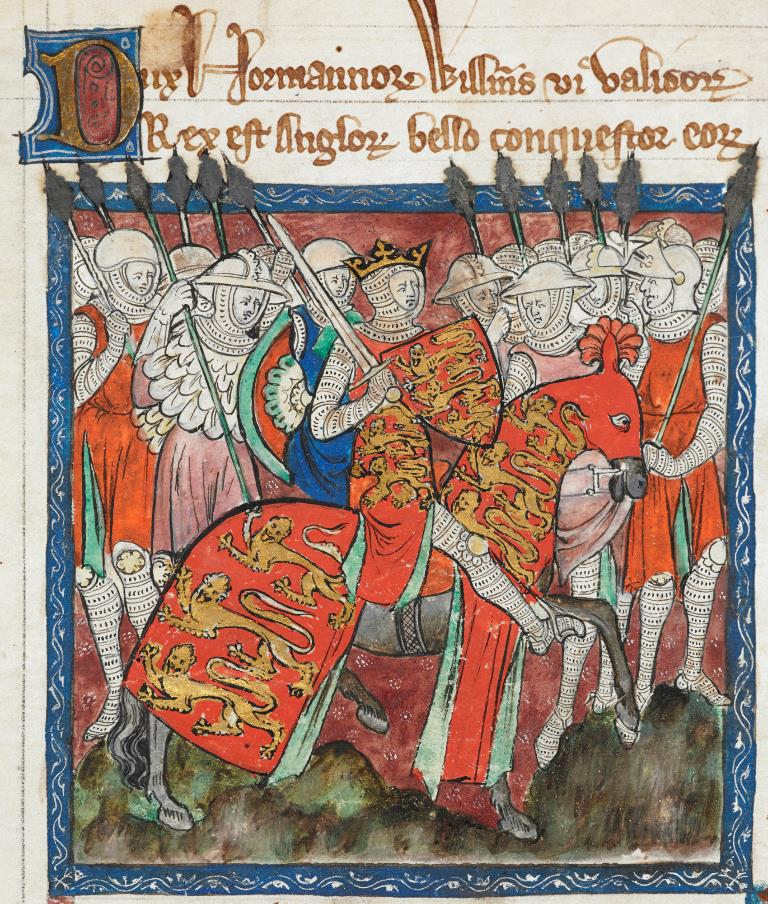 Dux Normannoꝝ Willms vi validoꝝ
Rex est Angloꝝ bello conquestor eoꝝ